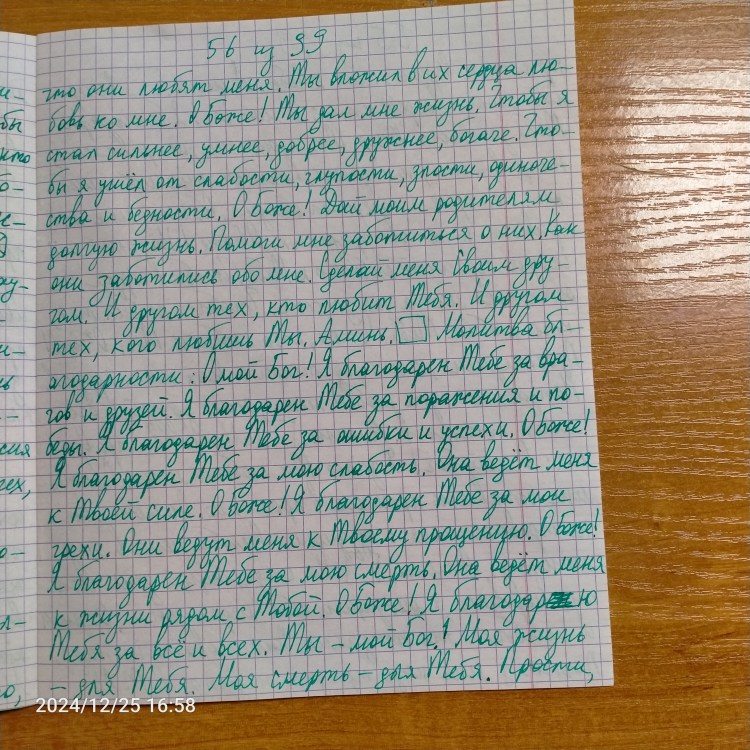 56 из 99
что они любят меня. Ты вложил в их сердца лю-
бовь ко мне. О Боже! Ты дал мне жизнь. Чтобы я
стал сильнее, умнее, добрее, дружнее, богаче. Что-
бы я ушёл от слабости, глупости, злости, одиноче-
ства и бедности. О Боже! Дай моим родителям
долгую жизнь. Помоги мне заботиться о них. Как
они заботились обо мне. Сделай меня Своим дру-
гом. И другом тех, кто любит Тебя. И другом
тех, кого любишь Ты. Аминь. Молитва бл-
агодарности: О мой Бог! Я благодарен Тебе за вра-
гов и друзей. Я благодарен Тебе за поражения и по-
беды. Я благодарен Тебе за ошибки и успехи. О Боже!
Я благодарен Тебе за мою слабость. Она ведёт меня
к Твоей силе. О Боже! Я благодарен Тебе за мои
грехи. Они ведут меня к Твоему прощению. О Боже!
Я благодарен Тебе за мою смерть. Она ведёт меня
к жизни рядом с Тобой. О Боже! Я благодарю
Тебя за всё и всех. Ты – мой Бог! Моя жизнь
– для Тебя. Моя смерть – для Тебя. Прости,
2024/12/25 16:58